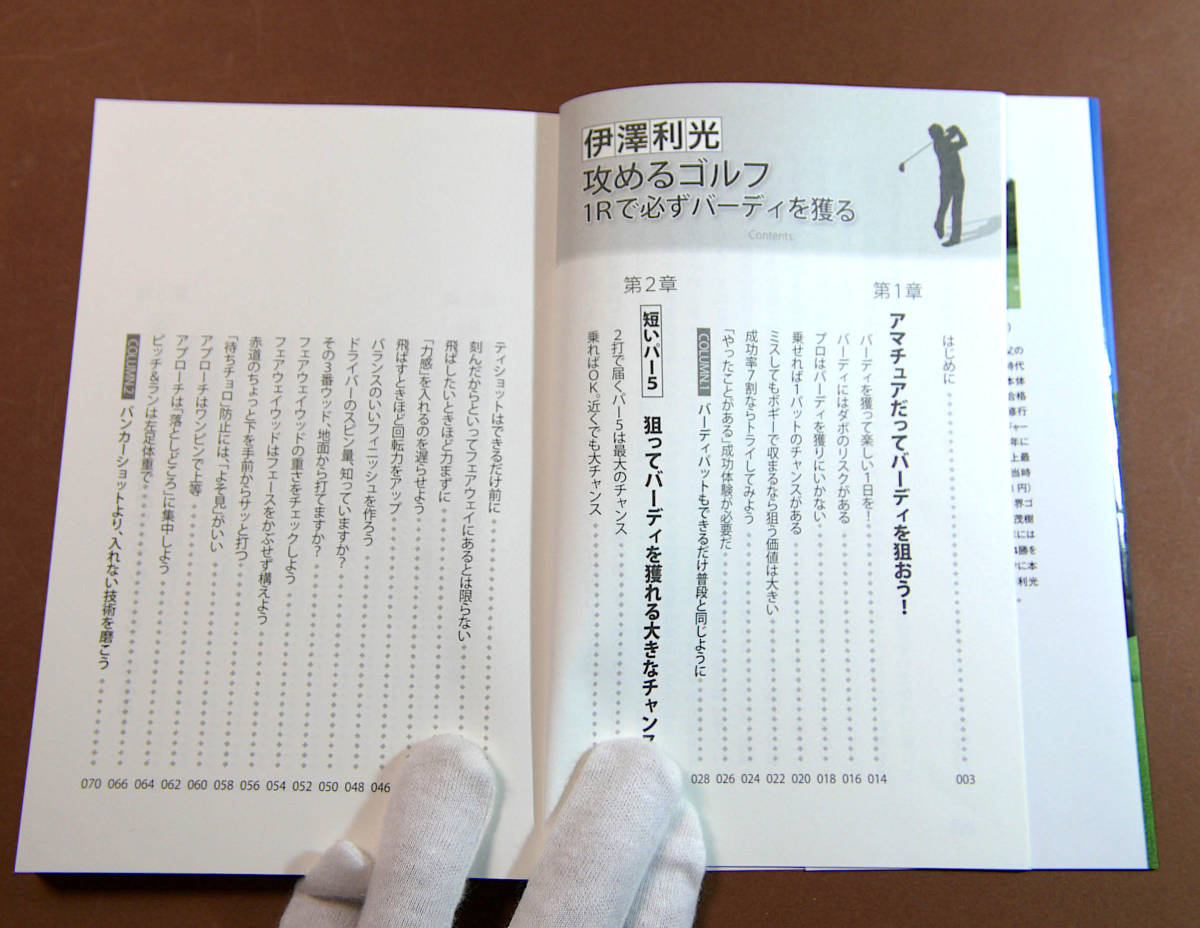 伊澤利光
攻めるゴルフ
1Rで必ずバーディを獲る
Contents
はじめに 003
第1章
アマチュアだってバーディを狙おう!
バーディを獲って楽しい1日を! 014
バーディにはダボのリスクがある 016
プロはバーディを獲りにいかない 018
乗せれば1パットのチャンスがある 020
ミスしてもボギーで収まるなら狙う価値は大きい 022
成功率7割ならトライしてみよう 024
「やったことがある」成功体験が必要だ 026
COLUMN 1 バーディパットもできるだけ普段と同じように 028
第2章
短いパー5 狙ってバーディを獲れる大きなチャンス
2打で届くパー5は最大のチャンス
乗ればOK。近くでも大チャンス
ティショットはできるだけ前に
刻んだからといってフェアウェイにあるとは限らない
飛ばしたいときほど力まずに
「力感」を入れるのを遅らせよう
飛ばすときほど回転力をアップ 046
バランスのいいフィニッシュを作ろう 048
ドライバーのスピン量、知っていますか? 050
その3番ウッド、地面から打てますか? 052
フェアウェイウッドの重さをチェックしよう 054
フェアウェイウッドはフェースをかぶせず構えよう 056
赤道のちょっと下を手前からサッと打つ 058
「待ちチョロ」防止には、「よそ見」がいい 060
アプローチはワンピンで上等 062
アプローチは「落としどころ」に集中しよう 064
ピッチ&ランは左足体重で 066
COLUMN 2 バンカーショットより、入れない技術を磨こう 070
)
父の
時代
本体
治格
修行
ャー
年に
上最
当時
1円)
界ゴ
茂樹
には
4勝を
に本
利光